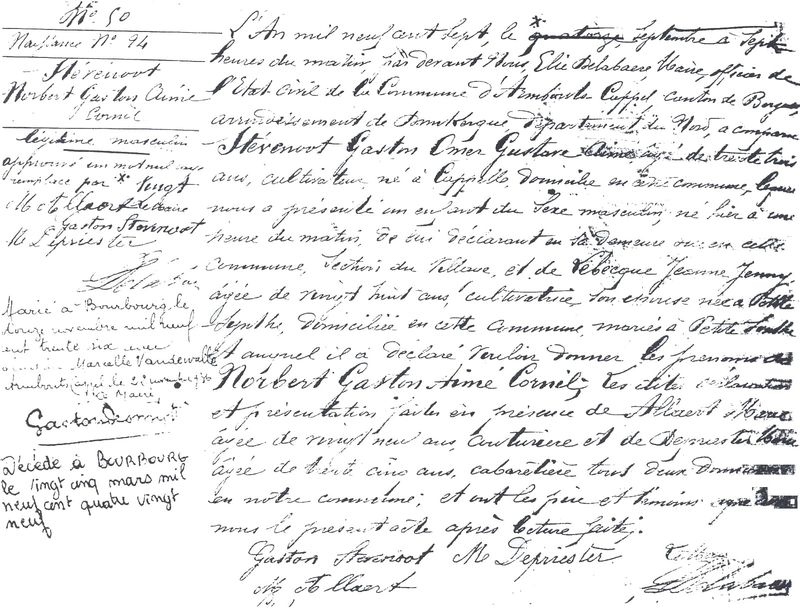 N° 50
Naissance N° 94
Stévenoot
Norbert Gaston Aimé
Cornil
légitime masculin
approuvé un mot nul
remplacé par x Vingt
M Allaert
Gaston Stevenoot
M Depriester
Marié à Bourbourg le
douze novembre mil neuf
cent trente six avec
Marcelle Vandewalle
Décédé à BOURBOURG
le vingt cinq mars mil
neuf cent quatre vingt
neuf
L'An mil neuf cent Sept, le x quatorze Septembre à Sept
heures du matin, par devant Nous, Elie Debabaere, Maire, officier de
l'Etat civil de la Commune d'Armbouts-Cappel, canton de Bergues,
arrondissement de Dunkerque département du Nord, a comparu
Stévenoot Gaston Omer Gustave Aimé, âgé de trente trois
ans, cultivateur, né à Cappelle, domicilié en cette commune, lequel
nous a présenté un enfant du Sexe masculin, né hier à une
heure du matin, de lui déclarant en sa demeure sise en cette
commune, Section du Village, et de Lebecque Jeanne Jenny,
âgée de vingt huit ans, cultivatrice, son épouse née à Petite
Synthe, domiciliée en cette commune, mariés à Petite Synthe
et auquel il a déclaré vouloir donner les prénoms de
Norbert Gaston Aimé Cornil; les dites déclaration
et présentation faites en présence de Allaert
âgée de vingt neuf ans, couturière et de Depriester
âgée de trente cinq ans, cabaretière tous deux domiciliés
en notre commune; et ont les père et témoins signé avec
nous le présent acte après lecture faite.
Gaston Stevenoot M Depriester
M Allaert